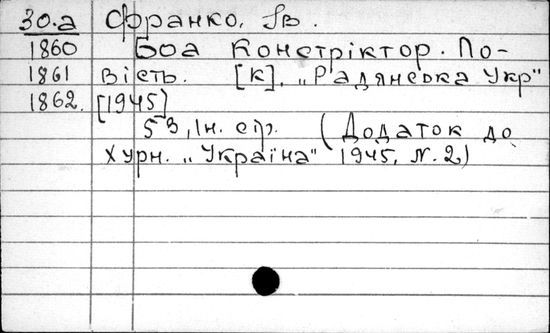 30.а Франко, Ів.
1860 Боа Констріктор. По-
1861 вість. [К]. „Радянська Укр"
1862. [1945]
53, Ін. стр. (Додаток до
журн. „Україна" 1945, N. 2)